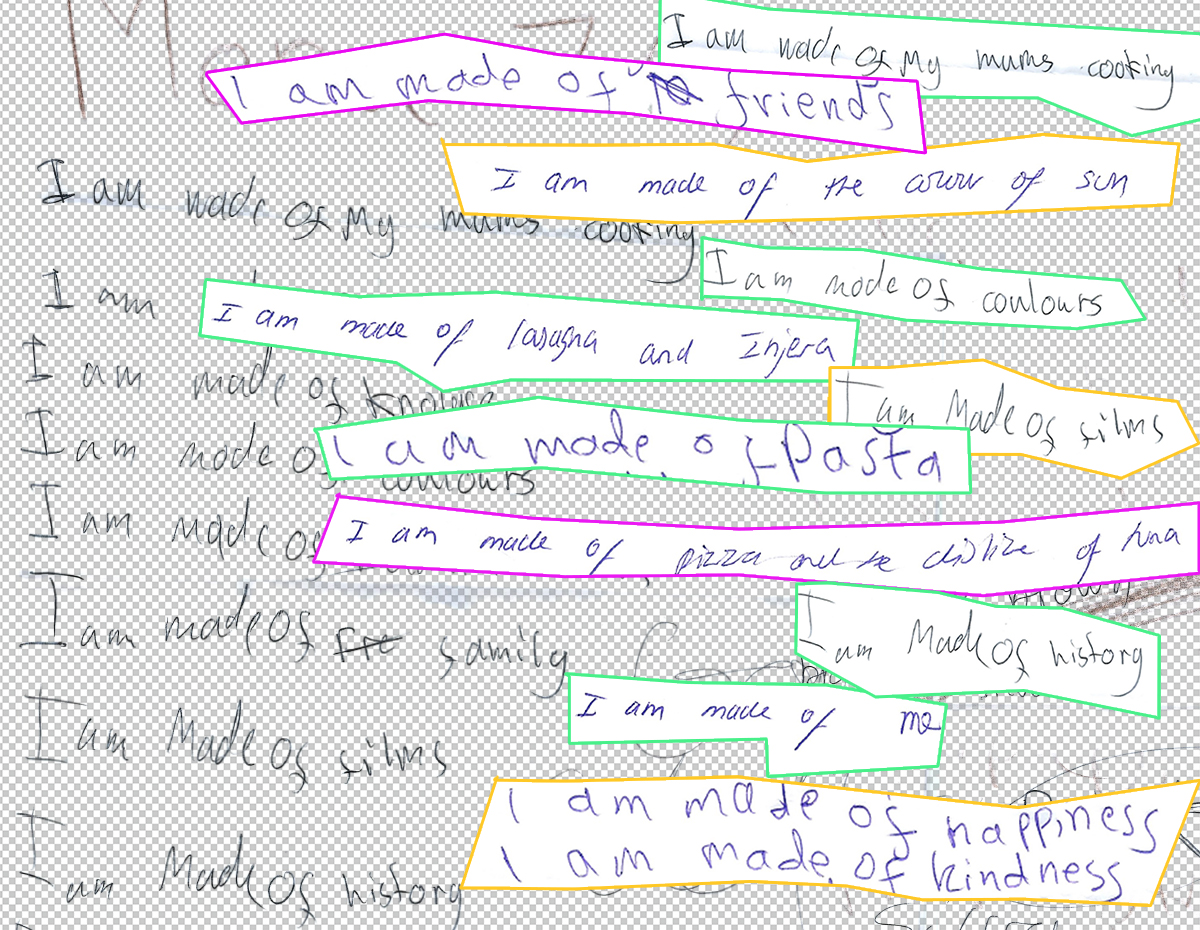 I am made of My mums cooking
I am made of friends
I am made of the colour of sun
I am made of My mums cooking
I am made of coulours
I am
I am made of lasagna and Injera
I am made of
I am Made of films
I am made of Pasta
I am made of coulours
I am made of
I am made of pizza and the dislike of tuna
I am Made of history
I am made of family
I am made of me
I am Made of films
I am made of happiness
I am made of kindness
I am Made of history